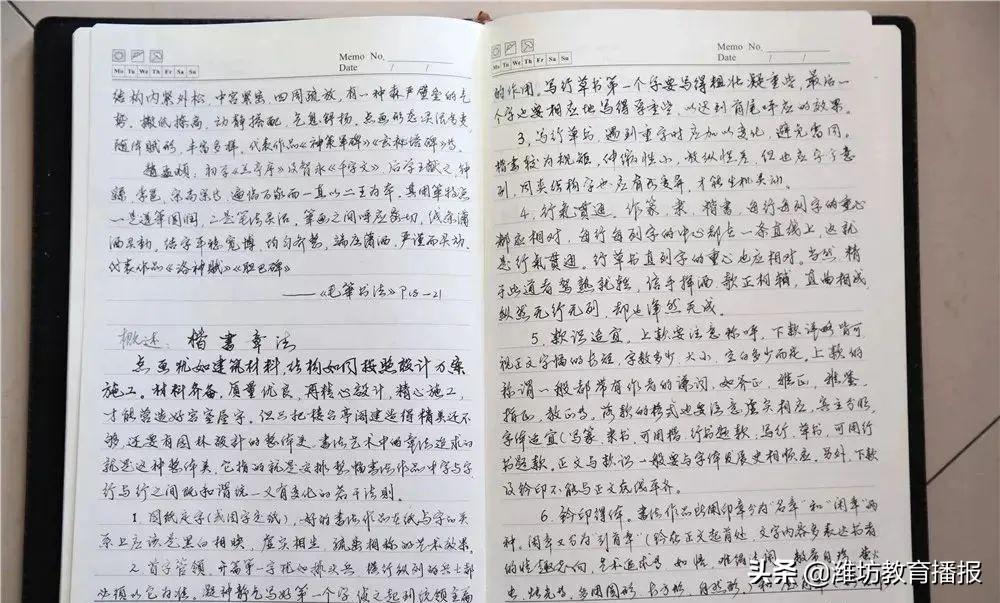 Memo No.
Mo Tu We Th Fr Sa Su
Date / /
结构内紧外松，中宫紧密，四周疏放，有一种森严壁垒的气
势，撇低捺高，动静搭配，点画形态
随体赋形，丰富多样，代表作品《神策军碑》《玄秘塔碑》等。
赵孟頫，初学《兰亭序》及智永《千字文》，后学王献之、钟
繇、李邕、宋高宗等，遍临百家而一直以二王为本，其用笔特点
一是运笔圆润，二是笔法灵活，笔画之间呼应密切，优尔潇
洒灵动，结字平稳宽博，均匀齐整，端庄潇洒，严谨而灵动，
代表作品《洛神赋》《胆巴碑》
——《毛笔书法》P18-21
概述：楷书章法
点画犹如建筑材料，结构如同按照设计方案
施工。材料齐备，质量优良，再精心设计，精心施工，
才能营造好宫室屋宇。但只把楼台亭阁建造得精美还不
够，还要有园林设计的整体美。书法艺术中的章法追求的
就是这种整体美，它指的就是安排整幅书法作品中字与字
行与行之间既和谐统一又有变化的若干法则。
1. 因纸定字（或因字定纸），好的书法作品在纸与字的关
系上应该是黑白相映，虚实相生，疏密相称的艺术效果。
2. 首字管领，开篇第一字
必须以它为准。凝神静气写好第一个字，使之起到统领全篇
Memo No.
Mo Tu We Th Fr Sa Su
Date / /
的作用。写行草书第一个字要写得粗壮凝重些，最后一
个字也要相应地写得厚重些，以达到首尾呼应的效果。
3. 写行草书，遇到重字时应加以变化，避免雷同。
楷书较为规矩，伸缩性小，放纵性差，但也应字字意
别，同类结构字也应有所差异，才能生机灵动。
4. 行氣贯通。作篆、隶、楷书，每行每列字的重心
都应相对，每行每列字的中心都在一条直线上，也就
是行氣贯通。行草书直列字的重心也应相对。当然，精
于此道者驾熟就轻，信手挥洒，欹正相辅，直曲相成，
纵然无行无列，却也浑然完成。
5. 款识适宜，上款要注意称呼，下款详略皆可
视正文字幅的长短，字数多少，大小，空白多少而定。上款的
称谓一般都带有作者的谦词，如斧正、雅正、雅鉴、
指正、教正等。落款的格式也要注意虚实相应，宾主分明，
字体适宜（写篆、隶书，可用楷、行书题款，写行、草书，可用行
书题款。正文与款识一般要与字体发展史相顺应。另外，下款
及钤印不能与正文底低平齐。
6. 钤印得体。书法作品所用印章分为“名章”和“闲章”两
种。闲章又分为“引首章”（钤在正文起首处，文字内容多表达书者
的情趣志向、艺术追求等，如
头条 @潍坊教育播报